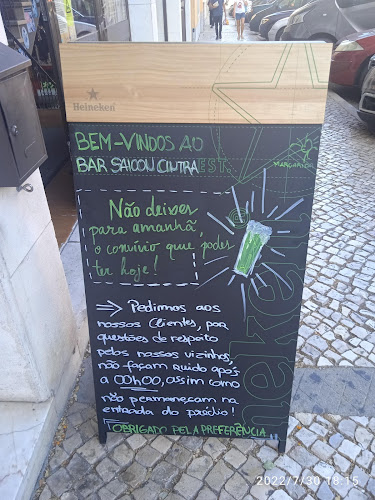 Heineken
BEM-VINDOS AO
BAR SALOON CINTRA
EST.
MARGARIDA
Não deixes
para amanhã,
o convívio que podes
ter hoje!
⇒ Pedirmos aos
nossos clientes, por
questões de respeito
pelos nossos vizinhos,
não façam ruído após
a 00h00, assim como
não permaneçam na
entrada do prédio!
OBRIGADO PELA PREFERÊNCIA
heineken
2022/7/30 18:15